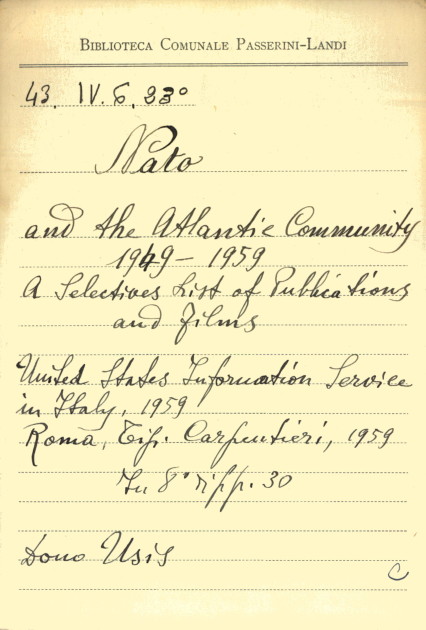 BIBLIOTECA COMUNALE PASSERINI-LANDI
43. IV. 6. 23°
Nato
and the Atlantic Community
1949 – 1959
A Selectives List of Publications
and Films
United States Information Service
in Italy, 1959
Roma, Tip. Carpentieri, 1959
In 8° di pp. 30
Dono Usis
C